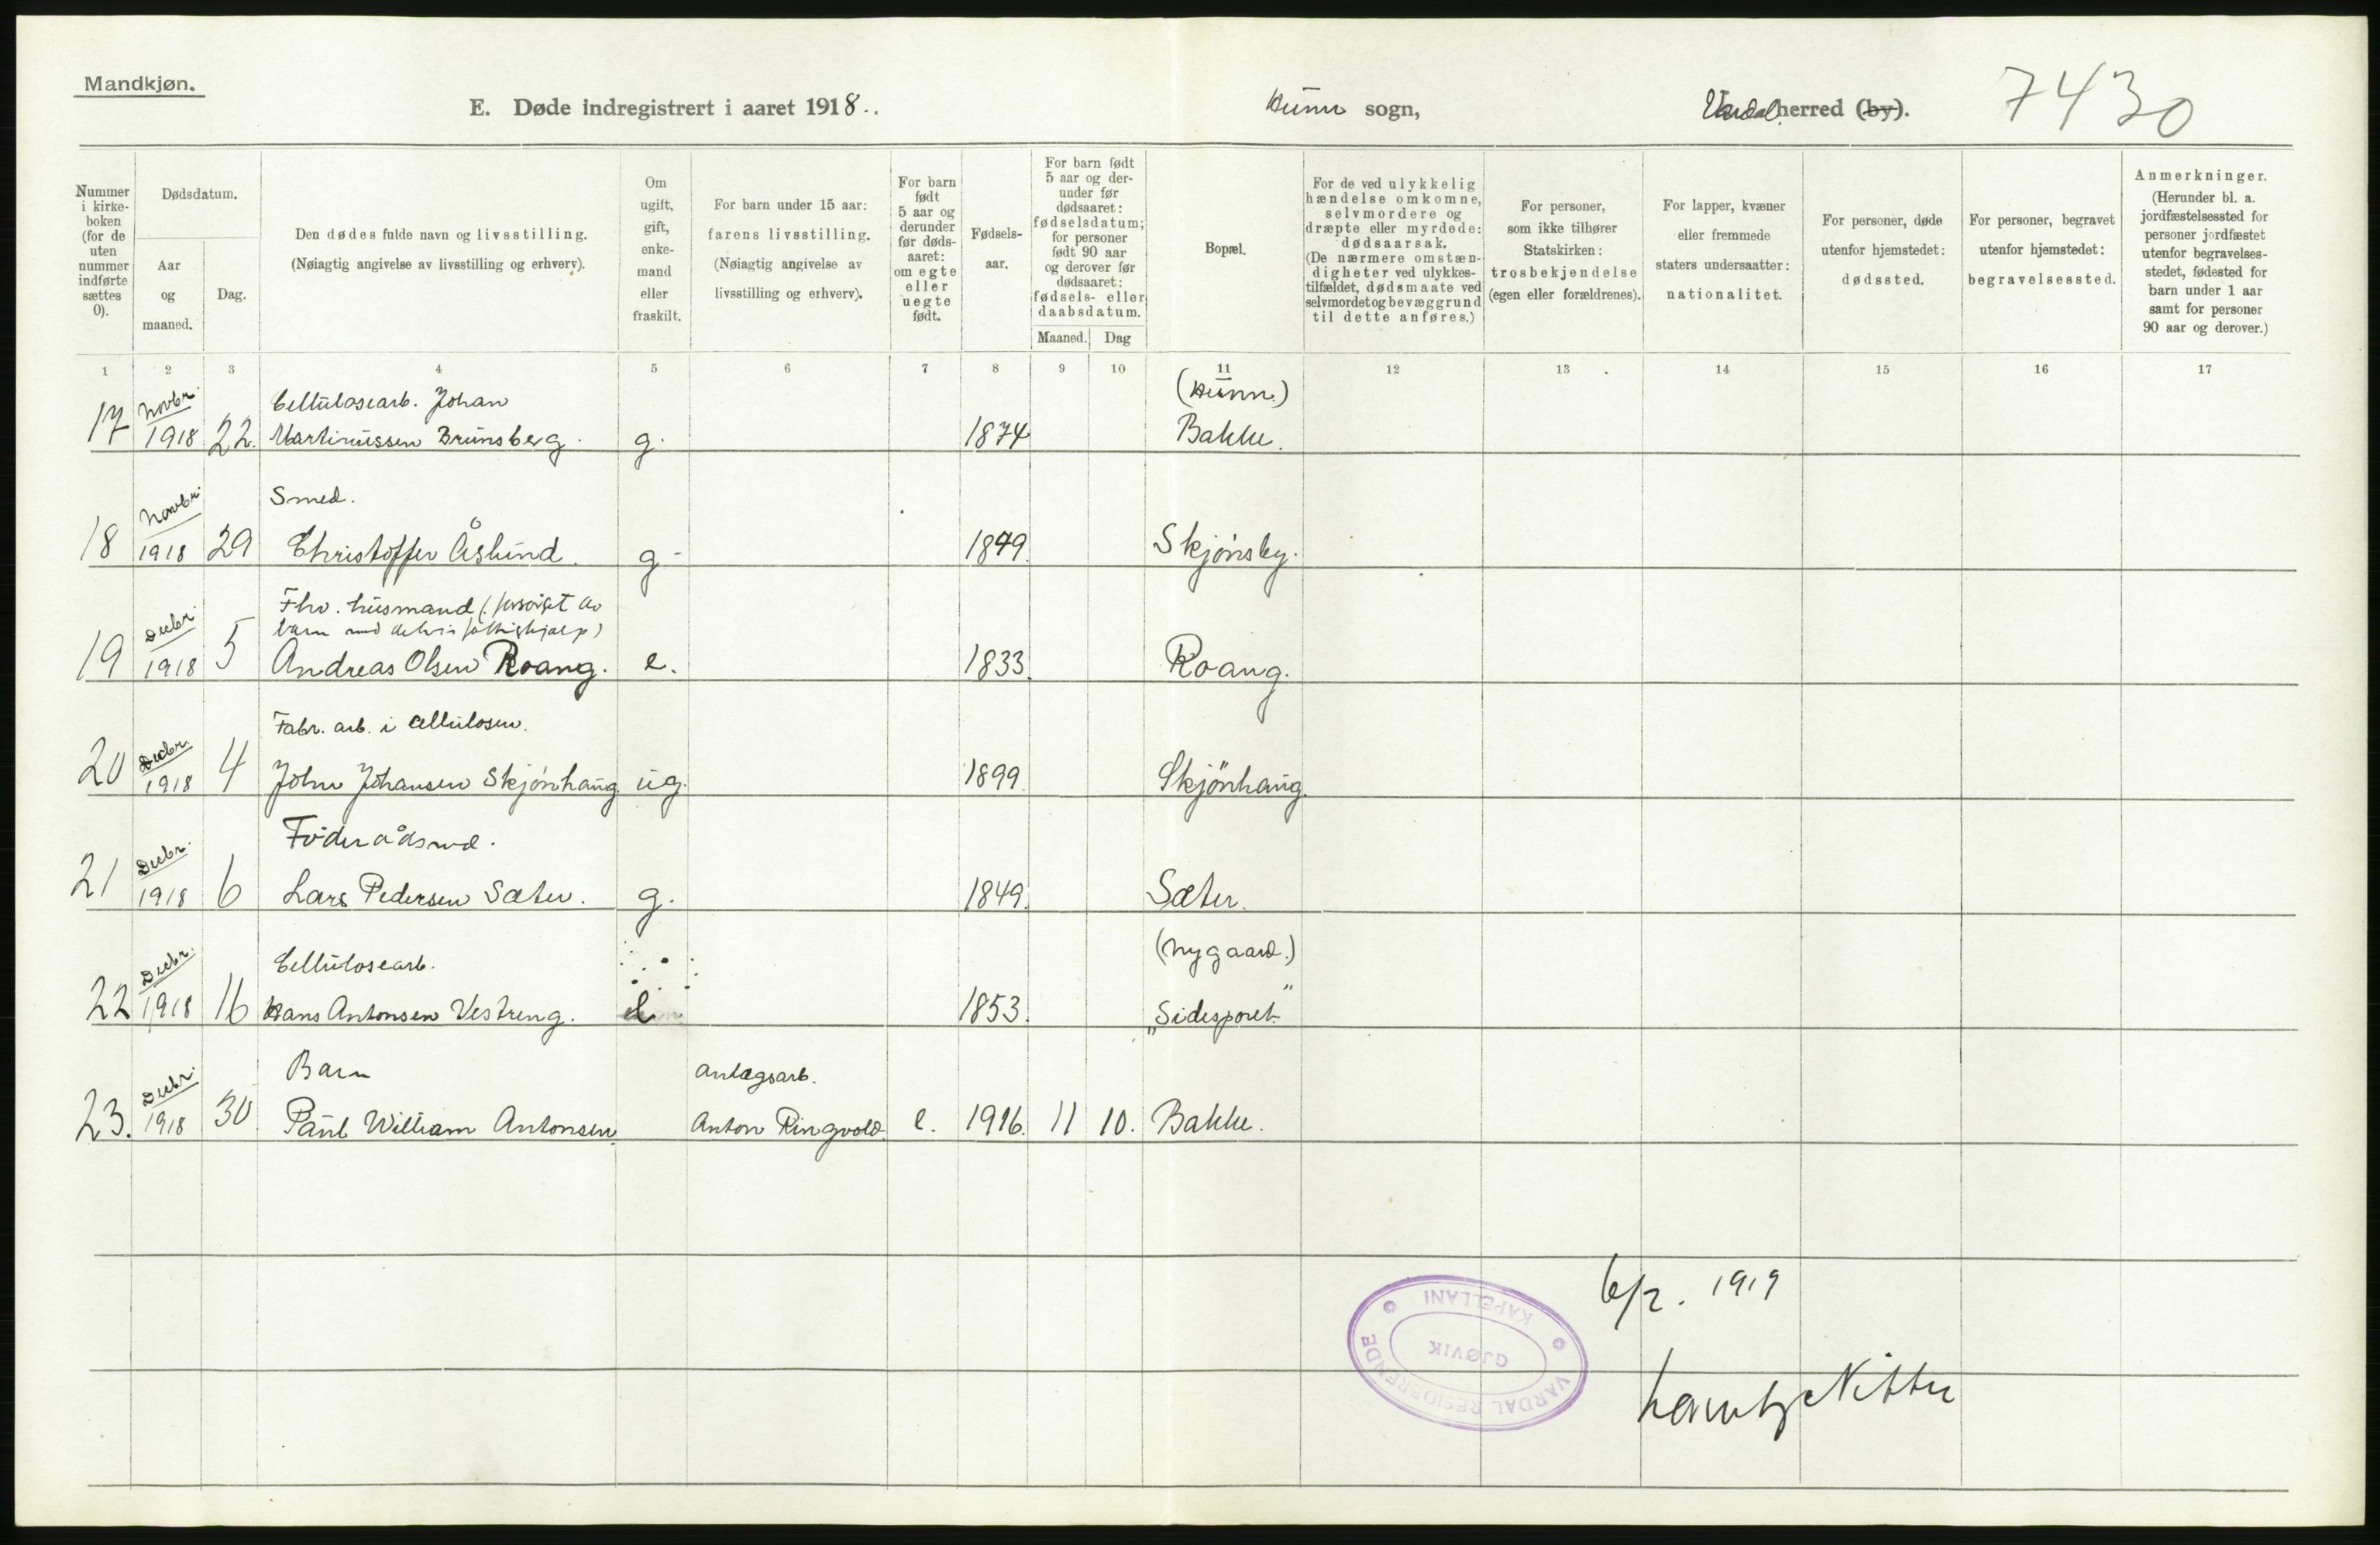 Mandkjøn.
E. Døde indregistrert i aaret 1918..
Hunn sogn,
Vardal herred (by).
7430
Nummer i kirkeboken (for de uten nummer indførte sættes 0).
Dødsdatum.
Aar og maaned.
Dag.
Den dødes fulde navn og livsstilling.
(Nøiagtig angivelse av livsstilling og erhverv).
Om ugift, gift, enkemand eller fraskilt.
For barn under 15 aar: farens livsstilling.
(Nøiagtig angivelse av livsstilling og erhverv).
For barn født 5 aar og derunder før dødsaaret: om egte eller uegte født.
Fødselsaar.
For barn født 5 aar og derunder før dødsaaret: fødselsdatum; for personer født 90 aar og derover før dødsaaret: fødsels- eller daabsdatum.
Maaned.
Dag
Bopæl.
For de ved ulykkelig hændelse omkomne, selvmordere og dræpte eller myrdede: dødsaarsak.
(De nærmere omstændigheter ved ulykkestilfældet, dødsmaate ved selvmordet og bevæggrund til dette anføres.)
For personer, som ikke tilhører Statskirken: trosbekjendelse (egen eller forældrenes).
For lapper, kvæner eller fremmede staters undersaatter: nationalitet.
For personer, døde utenfor hjemstedet: dødssted.
For personer, begravet utenfor hjemstedet: begravelsessted.
Anmerkninger.
(Herunder bl. a. jordfæstelsessted for personer jordfæstet utenfor begravelsesstedet, fødested for barn under 1 aar samt for personer 90 aar og derover.)
1 2 3 4 5 6 7 8 9 10 11 12 13 14 15 16 17
Novbr. Cellulosearb. Johan (Hunn.)
17 1918 22. Martinussen Brunsberg. g. 1874 Bakke.
Novbr. Smed.
18 1918 29 Christoffer Åslund. g- 1849. Skjønsby.
Fhv. husmand (forsörget av
Decbr. barn med delvis fattighjælp)
19 1918 5 Andreas Olsen Roang. e. 1833. Roang.
Decbr. Fabr. arb. i cellulosen.
20 1918 4 John Johansen Skjönhaug. ug. 1899. Skjönhaug.
Decbr. Föderådsmd.
21 1918 6 Lars Pedersen Sæter. g. 1849. Sæter.
Decbr. Cellulosearb. (Nygaard.)
22 1918 16 Hans Antonsen Vestreng. e 1853. „Sidesporet"
Decbr. Barn Anlægsarb.
23. 1918 30 Paul William Antonsen. Anton Ringvold. e. 1916. 11 10. Bakke.
6/2. 1919
VARDAL RESIDERENDE KAPELLANI
GJØVIK